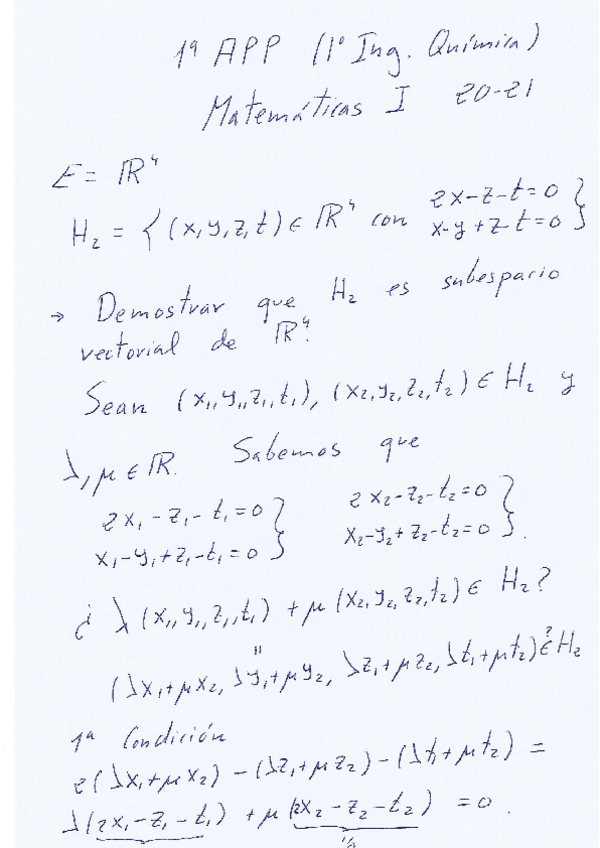 1ª APP (1º Ing. Química)
Matemáticas I 20-21
E = ℝ⁴
H₂ = { (x,y,z,t) ∈ ℝ⁴ con 2x-z-t=0
x-y+z-t=0 }
→ Demostrar que H₂ es subespacio
vectorial de ℝ⁴.
Sean (x₁,y₁,z₁,t₁), (x₂,y₂,z₂,t₂) ∈ H₂ y
λ, μ ∈ ℝ. Sabemos que
2x₁-z₁-t₁=0 } 2x₂-z₂-t₂=0 }
x₁-y₁+z₁-t₁=0 } x₂-y₂+z₂-t₂=0 }.
¿ λ(x₁,y₁,z₁,t₁) + μ(x₂,y₂,z₂,t₂) ∈ H₂?
"
(λx₁+μx₂, λy₁+μy₂, λz₁+μz₂, λt₁+μt₂) ∈? H₂
1ª Condición
2(λx₁+μx₂) - (λz₁+μz₂) - (λt₁+μt₂) =
λ(2x₁-z₁-t₁) + μ(2x₂-z₂-t₂) = 0.